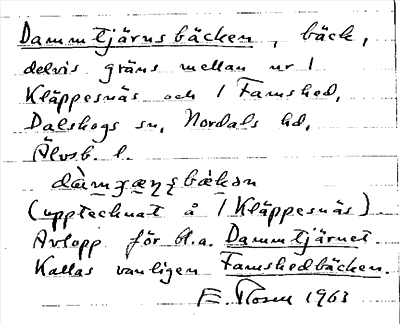 Dammtjärnsbäcken, bäck,
delvis gräns mellan nr 1
Kläppesnäs och 1 Famshed,
Dalskogs sn, Nordals hd,
Älvsb. l.
(upptecknat å 1 Kläppesnäs)
Avlopp för bl.a. Dammtjärnet.
Kallas vanligen Famshedbäcken.
E. 1963